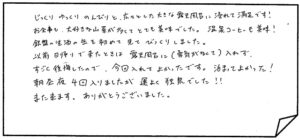 じっくり ゆっくり のんびりと、広々とした大きな露天風呂に浸れて満足です!
お食事も 大好きな山菜が多くて とても美味でした。温泉コーヒーも美味!
鉄盤の生活の生を初めて見て びっくりしました。
以前日帰りで来たときは 露天風呂に(時間がなくて)入れず、
すごく後悔したので、今回入れて よかったです。泊まってよかった!
朝昼夜 4回入りましたが 運よく 独気でした!!
また来ます。ありがとうございました。